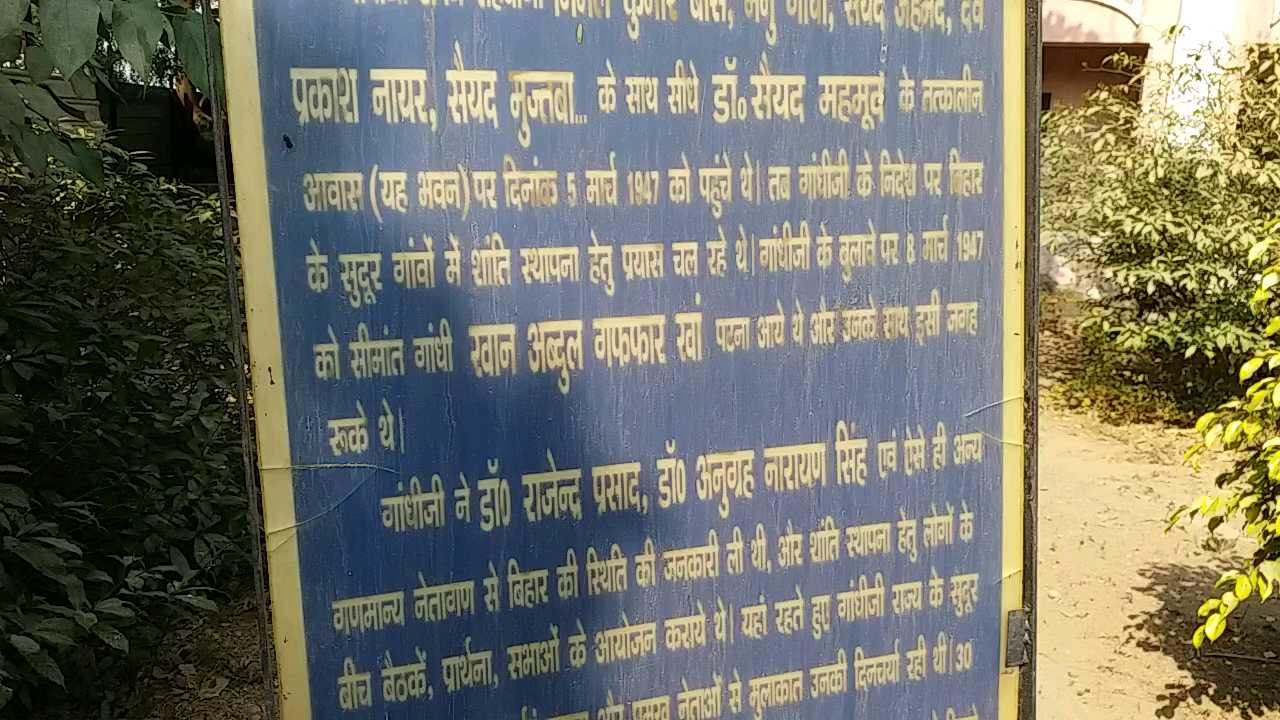 निर्मल कुमार बोस, मनु गांधी, सैयद अहमद, देव
प्रकाश नायर, सैयद मुज्तबा... के साथ सीधे डॉ० सैयद महमूद के तत्कालीन
आवास (यह भवन) पर दिनांक 5 मार्च 1947 को पहुंचे थे। तब गांधीजी के निदेश पर बिहार
के सुदूर गांवों में शांति स्थापना हेतु प्रयास चल रहे थे। गांधीजी के बुलावे पर 8 मार्च 1947
को सीमांत गांधी खान अब्दुल गफफार खां पटना आये थे और उनके साथ इसी जगह
रूके थे।
गांधीजी ने डॉ0 राजेन्द्र प्रसाद, डॉ0 अनुग्रह नारायण सिंह एवं ऐसे ही अन्य
गणमान्य नेतागण से बिहार की स्थिति की जनकारी ली थी, और शांति स्थापना हेतु लोगों के
बीच बैठकें, प्रार्थना, सभाओं के आयोजन कराये थे। यहां रहते हुए गांधीजी राज्य के सुदूर
और प्रमुख नेताओं से मुलाकात उनकी दिनचर्या रही थी। 30